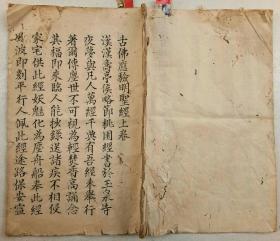 古佛應驗明聖經上卷
漢漢壽亭侯略節桃園經書於玉泉寺
夜夢與凡人萬經千典有吾經未舉行
著爾傳塵世不可視為輕焚香高誦念
其福即來臨人能抄錄送諸疾不相侵
家宅供此經妖魅化為塵舟船奉此經
風波即刻平行人佩此經途路保安寧